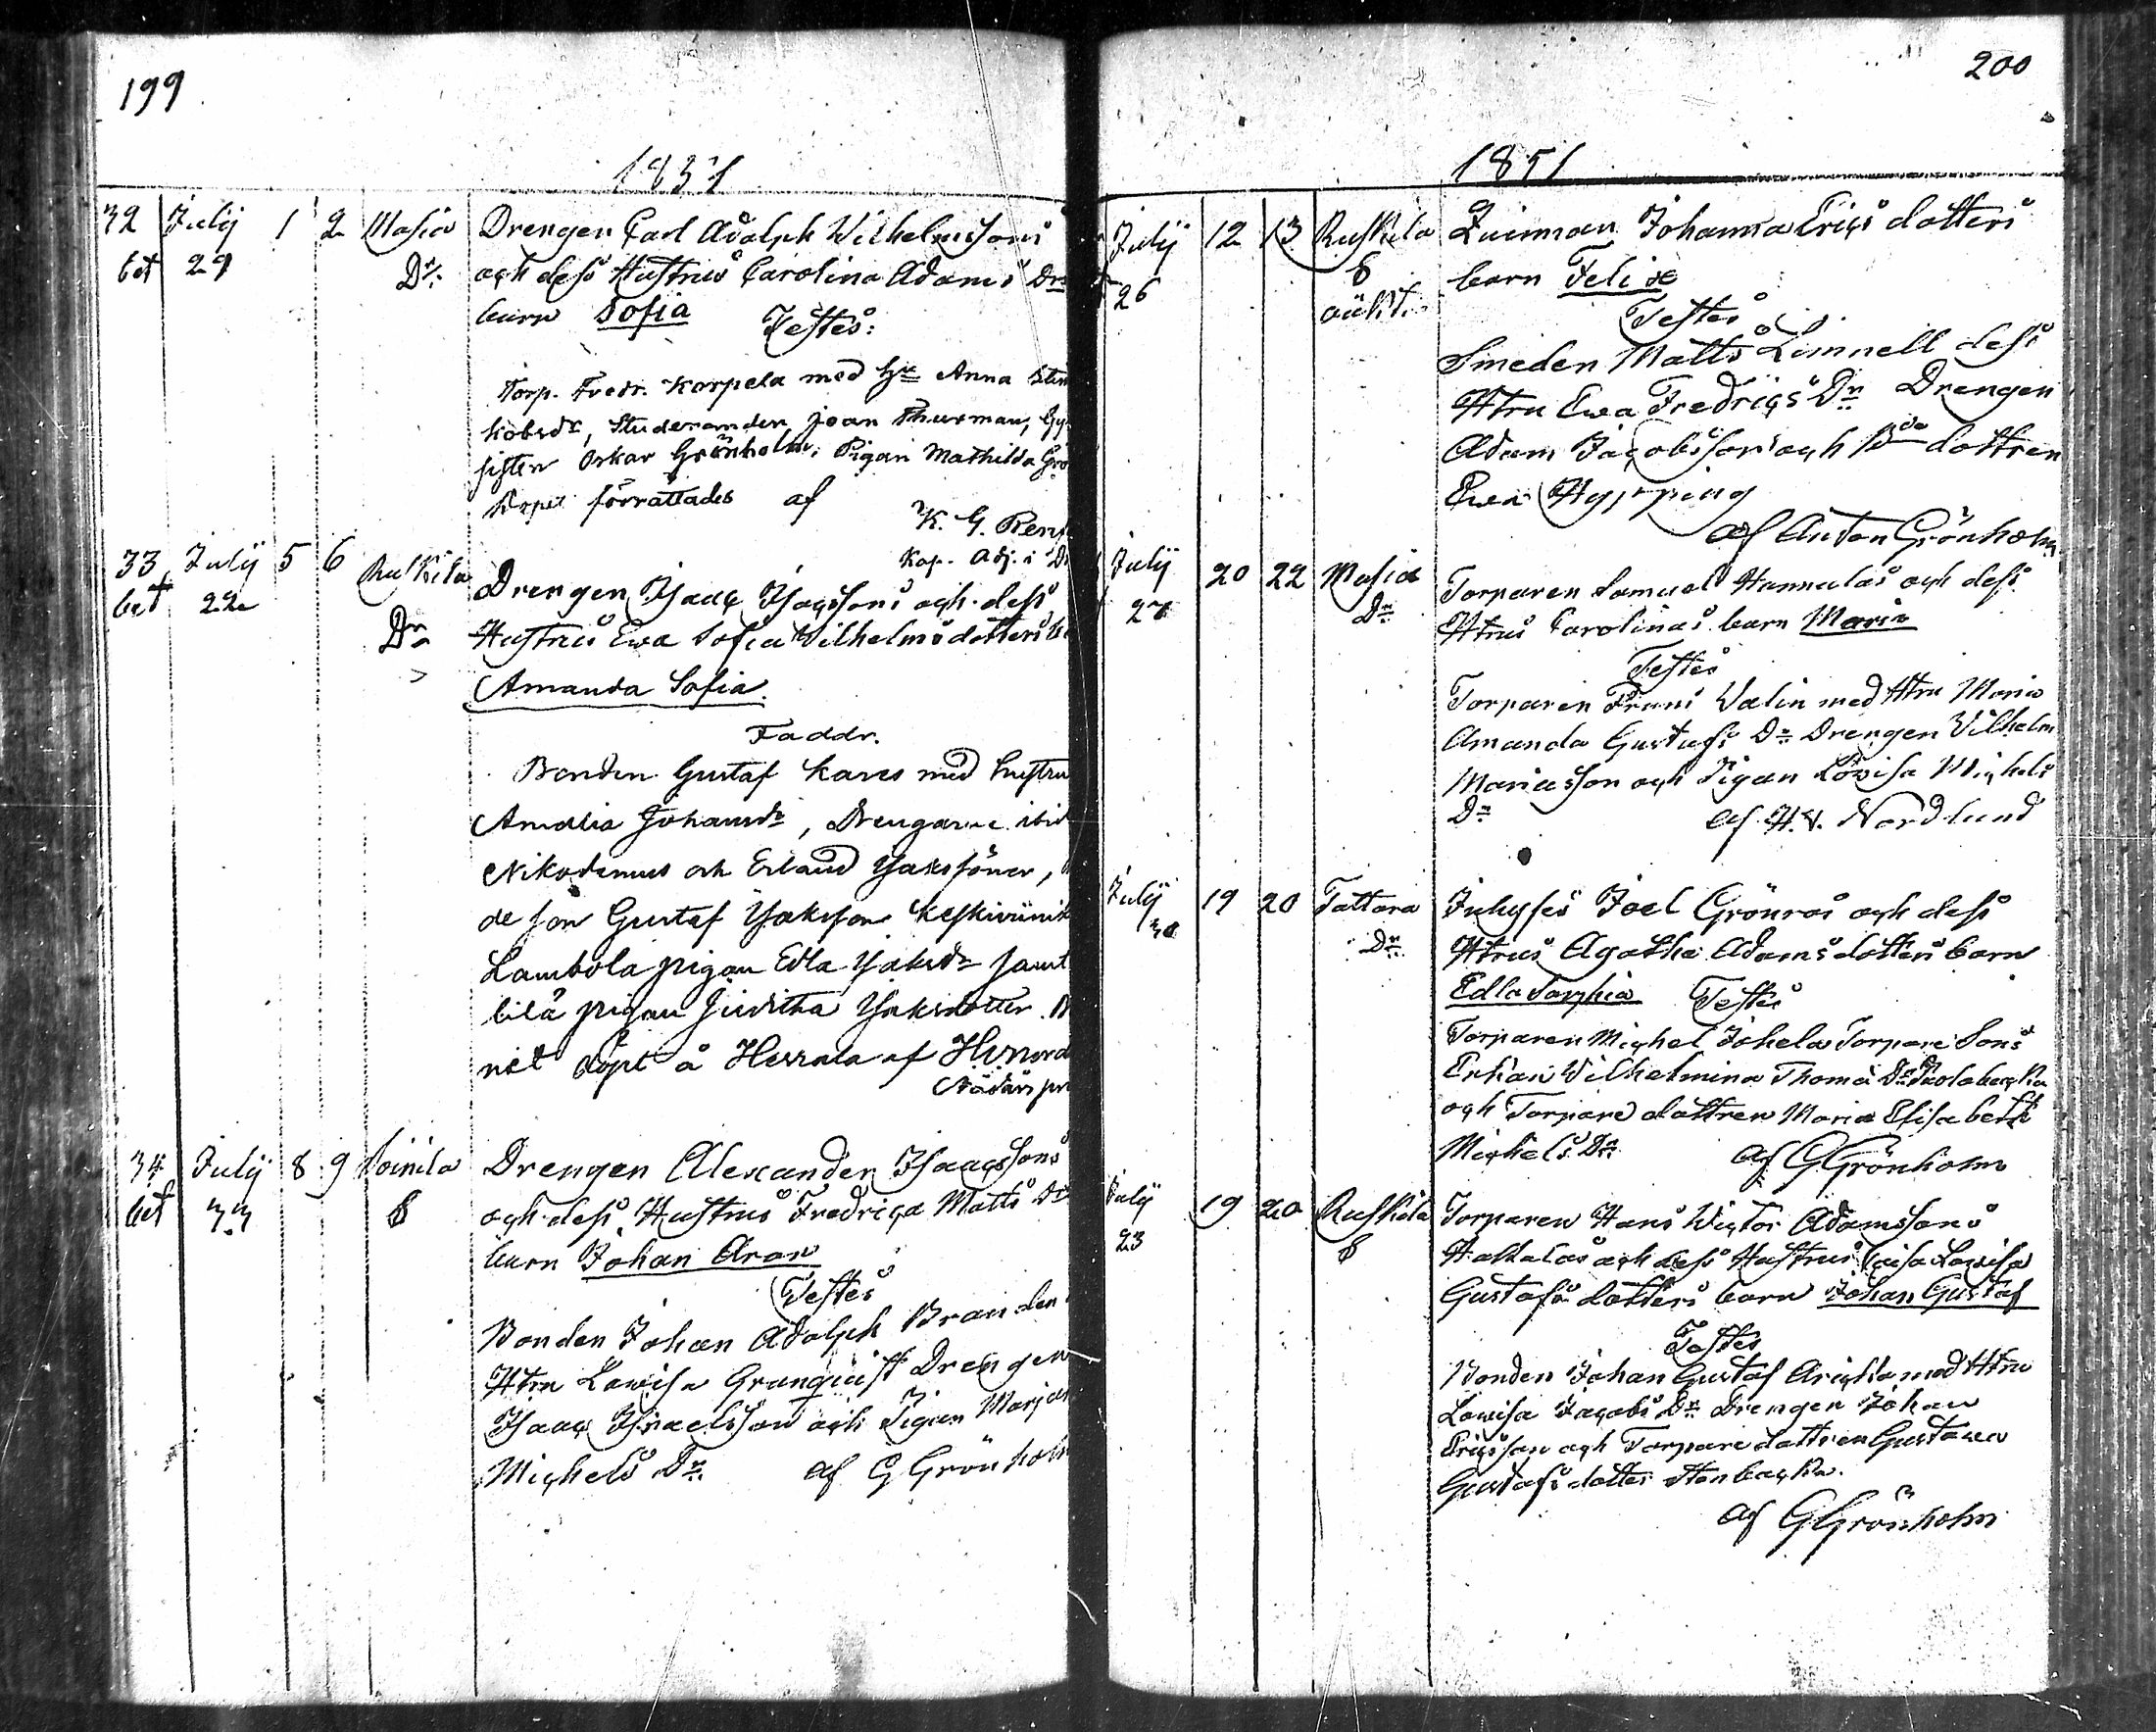 199
1851
32 July 1 2 Masia Drengen Carl Adolph Wilhelmssons
bet 29 Dr: och dess Hustrus Carolina Adams Dr
barn Sofia Testes:
Torp. Fredr. Korpela med Hu Anna
kobsdr, Studeranden Joan Thurman, Gy
sisten Oskar Grönholm, Pigan Mathilda Grö
Dopet förrättades af
K. G. Ren
Kap. Adj. i
33 July 5 6 Ruskila Drengen Isaac Isacssons och dess
bet 22 Dr Hustrus Ewa Sofia Wilhelmsdotters
Amanda Sofia.
Faddr.
Bonden Gustaf Kares med hustru
Amalia Johansdr, Drengarne ibid
Nikodemus och Erland Isakssöner,
de son Gustaf Isaksson
Lambola pigan Edla Isaksdr samt
bilä pigan Juditha Isaksdotter.
net döpt å Herrala af H.V. Nord
Nådårspr
34 July 8 9 Soinila Drengen Alexander Isaacssons
bet 33 S och dess Hustrus Fredrica Matts Dr
barn Johan Aron
Testes
Bonden Johan Adolph Branden
Htru Lowisa Granquist Drengen
Isaac Israelsson och Pigan Marja
Michels Dr: af G Grönholm
200
1851
July 12 13 Ruskila Qvinnan Johanna Erics dotters
26 S barn Felix
oäkt. Testes
Smeden Matts Limnell dess
Htru Ewa Fredrics Dr Drengen
Adam Jacobsson och dottren
Ewa Hypping
af Anton Grönholm
July 20 22 Masia Torparen Samuel Hannulas och dess
27 Dr Htrus Carolinas barn Maria
Testes
Torparen Frans Walin med Htru Maria
Amanda Gustafs Dr Drengen Vilhelm
Mariasson och Pigan Lovisa Michels
Dr af H.V. Nordlund
July 19 20 Tattara Inhyses Joel Grönros och dess
30 Dr Htrus Agatha Adams dotters barn
Edla Sophia Testes
Torparen Michel Johela Torpare Sons
Enkan Wilhelmina Thoma Dr
och Torpare dottren Maria Elisabeth
Michels Dr af G Grönholm
July 19 20 Ruskila Torparen Hans Wictor Adamssons
23 S och dess Hustrus Caisa Lowisa
Gustafs dotters barn Johan Gustaf
Testes
Bonden Johan Gustaf med Htru
Lowisa Jacobs Dr Drengen Johan
Ericsson och Torpare dottren Gustawa
Gustafs dotter Stenbacka.
af G Grönholm